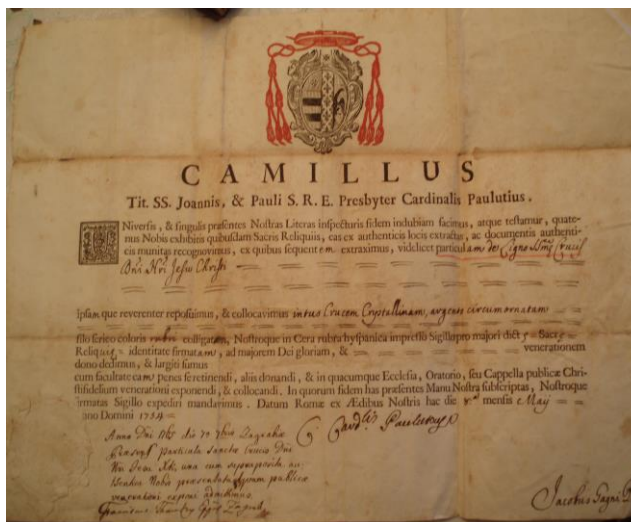 CAMILLUS
Tit. SS. Joannis, & Pauli S. R. E. Presbyter Cardinalis Paulutius.
UNiversis, & singulis præsentes Nostras Literas inspecturis fidem indubiam facimus, atque testamur, quate-
nus Nobis exhibitis quibusdam Sacris Reliquiis, eas ex authenticis locis extractas, ac documentis authenti-
cis munitas recognovimus, ex quibus sequentem extraximus, videlicet particulam de Ligno Crucis
Dni Nri Jesu Christi
Ipsamque reverenter reposuimus, & collocavimus intus Crucem Crystallinam, argento circumornatam
filo serico coloris rubri colligatam, Nostroque in Cera rubra hyspanica impresso Sigillo pro majori dict Sac
Reliqui identitate firmatam, ad majorem Dei gloriam, & venerationem
dono dedimus, & largiti fuimus
cum facultate eam penes se retinendi, aliis donandi, & in quacumque Ecclesia, Oratorio, seu Cappella publicæ Chri-
stifidelium venerationi exponendi, & collocandi. In quorum fidem has præsentes Manu Nostra subscriptas, Nostroque
firmatas Sigillo expediri mandavimus. Datum Romæ ex Ædibus Nostris hac die mensis Maij
Anno Domini 1754
C. Card. Paulutius
Anno Dni die 7bris Zagrabiæ
particula Sanctæ Crucis Dni
Nri Jesu Xti, una cum
Nobis publicæ
venerationi exponi admittimus
Jacobus